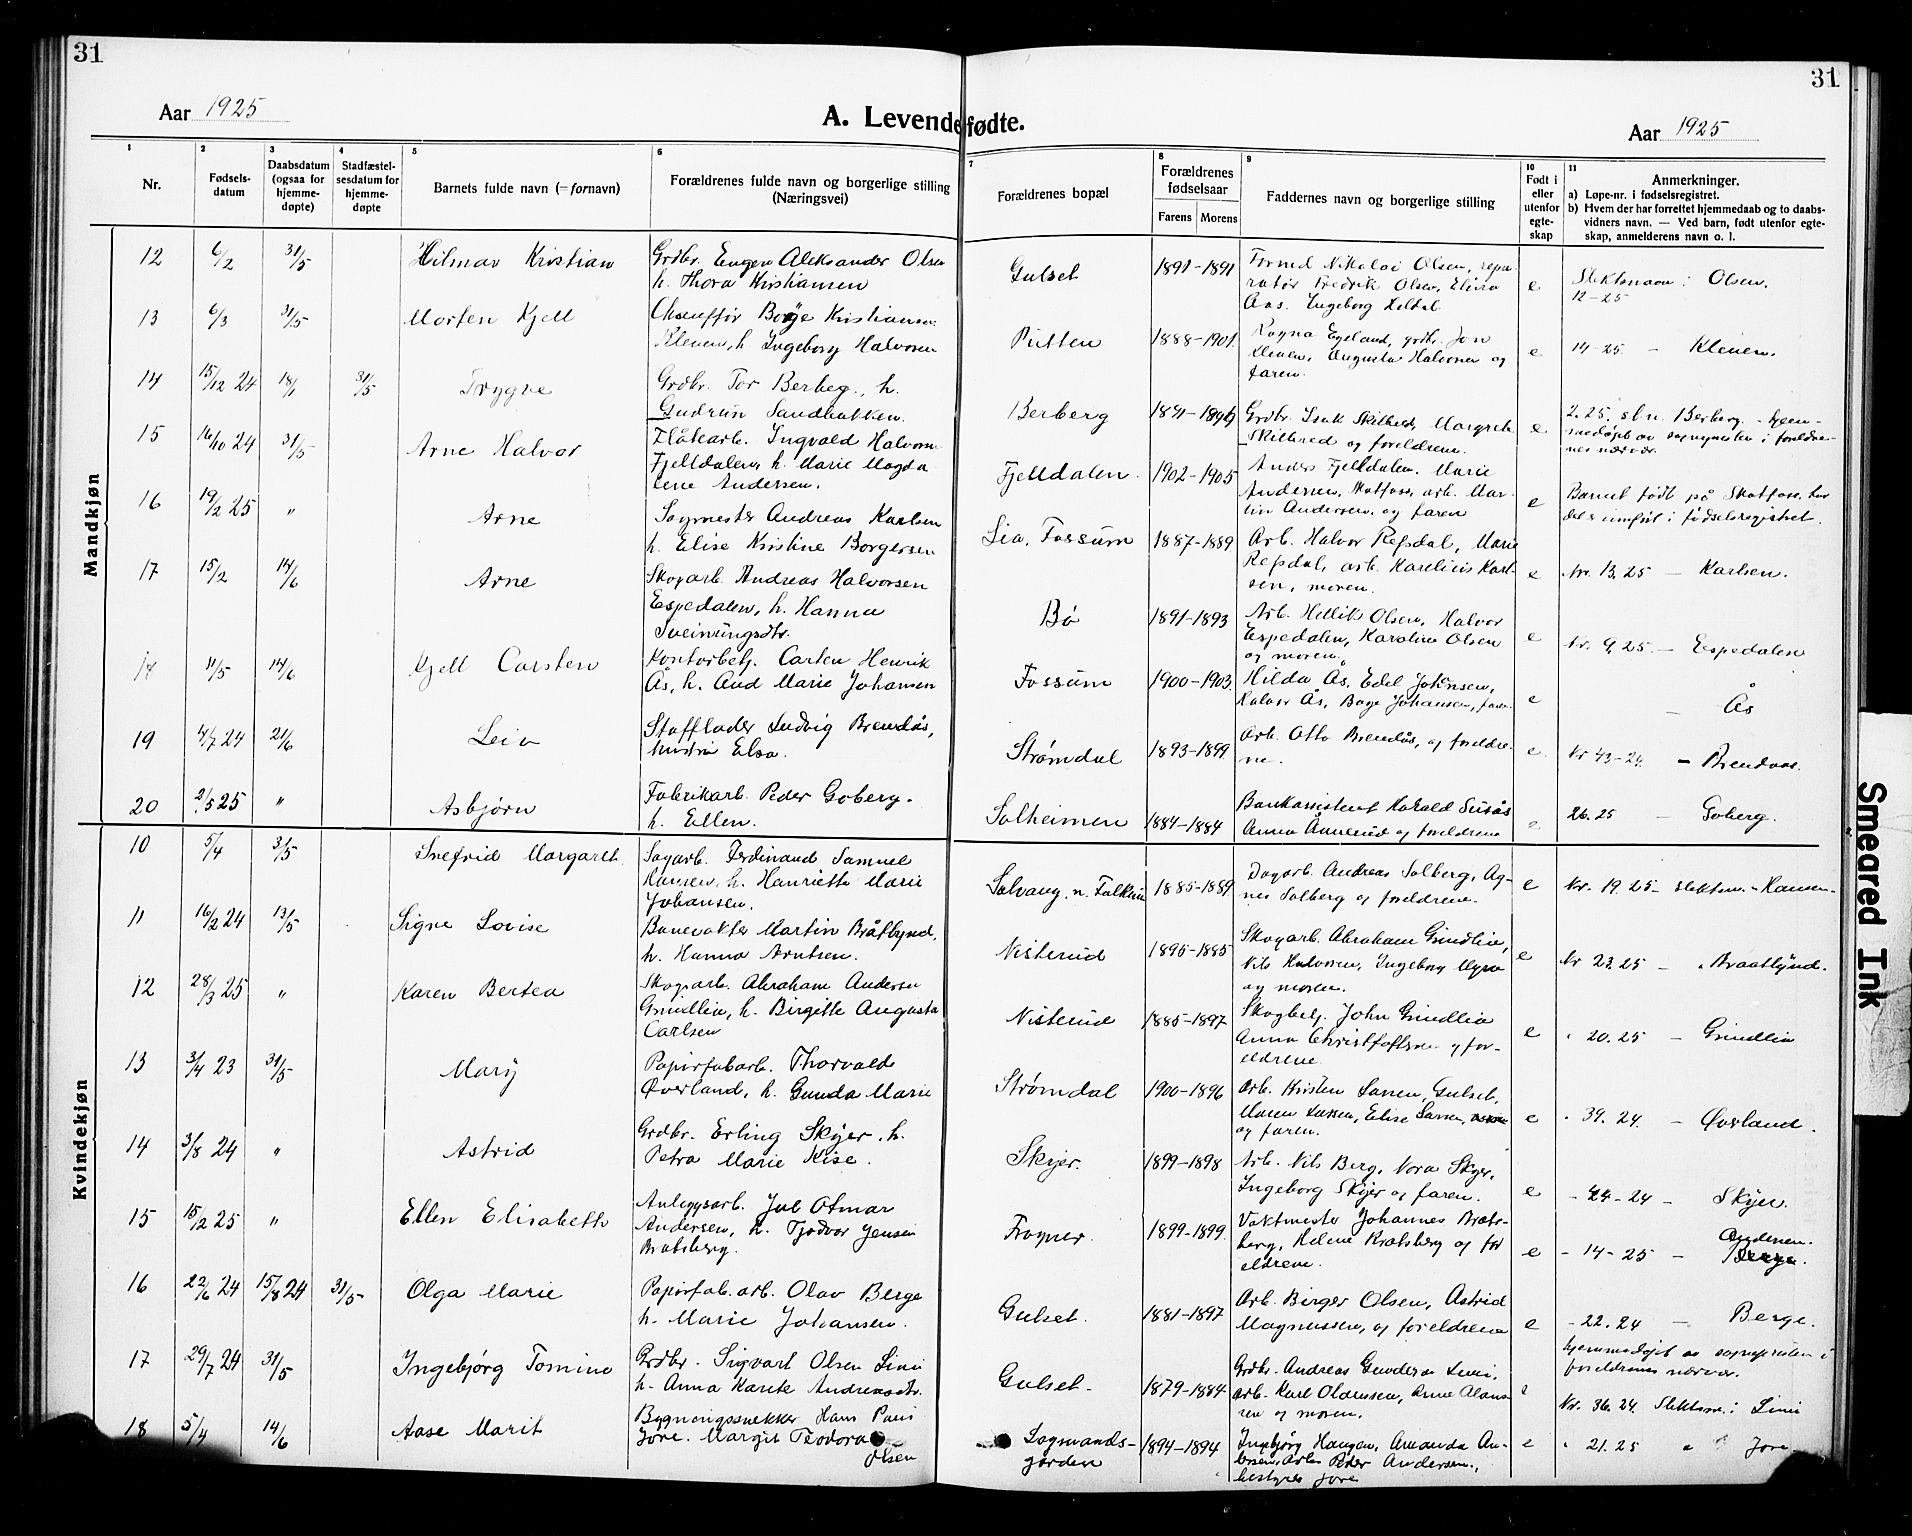 31
31
Aar 1925
A. Levendefødte.
Aar 1925
1
Nr.
2
Fødsels-
datum
3
Daabsdatum
(ogsaa for
hjemme-
døpte)
4
Stadfæstel-
sesdatum for
hjemme-
døpte
5
Barnets fulde navn (= fornavn)
6
Forældrenes fulde navn og borgerlige stilling
(Næringsvei)
7
Forældrenes bopæl
8
Forældrenes
fødselsaar
Farens Morens
9
Faddernes navn og borgerlige stilling
10
Født i
eller
utenfor
egte-
skap
11
Anmerkninger.
a) Løpe-nr. i fødselsregistret.
b) Hvem der har forrettet hjemmedaab og to daabs-
vidners navn. — Ved barn, født utenfor egte-
skap, anmelderens navn o. l.
Mandkjøn
12 6/2 31/5 Hilmar Kristian
Grdbr. Eugen Aleksander Olsen
h. Thora Kristiansen
Gulset 1891-1891
Formd Nikolai Olsen, repa-
ratør Fredrik Olsen, Elvira
Aas, Ingeborg Heldal
e
Slektsnavn: Olsen.
12-25
13 6/3 31/5 Morten Kjell
Chauffør Børge Kristiansen
Kleven, h. Ingeborg Halvorsen
Putten 1888-1901
Ragna Egeland, grdbr. Jon
Kleven, Augusta Halvorsen og
faren.
e 14-25 - Kleven.
14 15/12 24 18/1 31/5 Trygve
Grdbr. Tor Berberg, h.
Gudrun Sandbakken.
Berberg
Grdbr. Isak Skilbred, Margrete
Skilbred og foreldrene.
e
2.25. sln. Berberg. - hjem-
medøpt av sognepresten i foreldre-
nes nærvær.
15 16/10 24 31/5 Arne Halvor
Fløtearb. Ingvald Halvorsen
Fjelldalen, h. Marie Magda
lene Andersen.
Fjelldalen 1902-1905
Anders Fjelldalen, Marie
Andersen, Skotfoss, arb. Mar-
tin Andersen, og faren
e
Barnet født på Skotfoss, her
del innført i fødselsregistret.
16 19/2 25 " Arne
Sagmester Andreas Karlsen
h. Elise Kristine Borgersen
Lia, Fossum 1887-1889
Arb. Halvor Refsdal, Marie
Refsdal, arb. Karelius Karl-
sen, moren.
e Nr. 13.25 - Karlsen.
17 15/2 14/6 Arne
Skogarb. Andreas Halvorsen
Espedalen, h. Hanna
Sveinungsdtr.
Bø 1891-1893
Arb. Hellik Olsen, Halvor
Espedalen, Karoline Olsen
og moren.
e Nr. 9.25 - Espedalen
11/5 14/6 Kjell Carsten
Kontorbetj. Carten Henrik
Ås, h. Aud Marie Johansen
Fossum 1900-1903
Hilda Ås, Edel Johnsen,
Halvor Ås, Borge Johansen, faren
e - Ås
19 4/7 24 21/6 Leiv
Stufflader Ludvig Brendås,
hustru Elsa.
Strømdal 1893-1899
Arb. Otto Brendås, og foreldre-
ne.
e Nr 43-24. - Brendaas.
20 2/5 25 " Asbjørn
Fabrikarb. Peder Goberg.
h. Ellen.
Solheimen 1884-1884
Bankassistent Harald Surås
Anna Ånnerud og foreldrene
e 26.25 - Goberg.
Kvindekjøn
10 5/4 3/5 Snefrid Margareth
Sagarb. Ferdinand Samuel
Hansen, h. Henriette Marie
Johansen.
Solvang, n. Falkum 1885-1889
Dagarb. Andreas Solberg, Ag-
nes Solberg og foreldrene.
e Nr. 19.25 - slektsn. - Hansen
11 16/2 24 13/5 Signe Lovise
Banevakter Martin Bråtlynd,
h. Hanna Arntsen.
Nisterud 1895-1885
Skogarb. Abraham Grindlia,
Nils Halvorsen, Ingeborg Myra
og moren.
e Nr 23.25 - Braatlynd.
12 28/3 25 " Karen Bertea
Skogarb. Abraham Andersen
Grindlia, h. Birgitte Augusta
Carlsen
Nisterud 1885-1897
Skogbetj. John Grindlia
Anna Christoffersen og for-
eldrene
e " 20.25 - Grindlia
13 3/4 23 31/5 Mary
Papirfabarb. Thorvald
Øverland, h. Gunda Marie
Strømdal 1900-1896
Arb. Kirsten Larsen, Gulset,
Maren Larsen, Elise Larsen,
og faren.
e " 39.24. - Øverland.
14 3/8 24 " Astrid
Grdbr. Erling Skyer, h.
Petra Marie Kise.
Skyer. 1899-1898
Arb. Nils Berg, Nora Skyer,
Ingeborg Skyer og faren.
e - 24-24 - Skyer.
15 15/2 25 " Ellen Elisabeth
Anleggsarb. Jul Otmar
Andersen, h. Tjodvor Jensen
Bratsberg.
Frogner. 1899-1899
Vaktmester Johannes Brats-
berg, Helene Bratsberg og for
eldrene.
e - 14-25 - Andersen.
16 22/6 24 15/8 24 31/5 Olga Marie
Papirfab.arb. Olav Berge
h. Marie Johansen.
Gulset. 1881-1897
Arb. Birger Olsen, Astrid
Magnussen, og foreldrene
e - 22.24 - Berge.
hjemmedøpt av sognepresten i
foreldrenes nærvær.
17 29/7 24 31/5 Ingebjørg Tomine
Grdbr. Sigvart Olsen Limi
h. Anna Karete Andreasdtr.
Gulset. 1879-1884
Grdbr. Andreas Gundersen Limi,
arb. Karl Olamsen,
og moren.
Nr. 36.24. Slektsn.: Limi
18 5/4 14/6 Aase Marit
Bygningssnekker Hans Paus
Jore. Margit Teodora
Olsen
Lagmands-
gården
1894-1894
Ingebjørg Haugen, Amanda An-
dersen, Peder Andersen,
bestyrer Jore
e " 21.25 " Jore
Smeared Ink